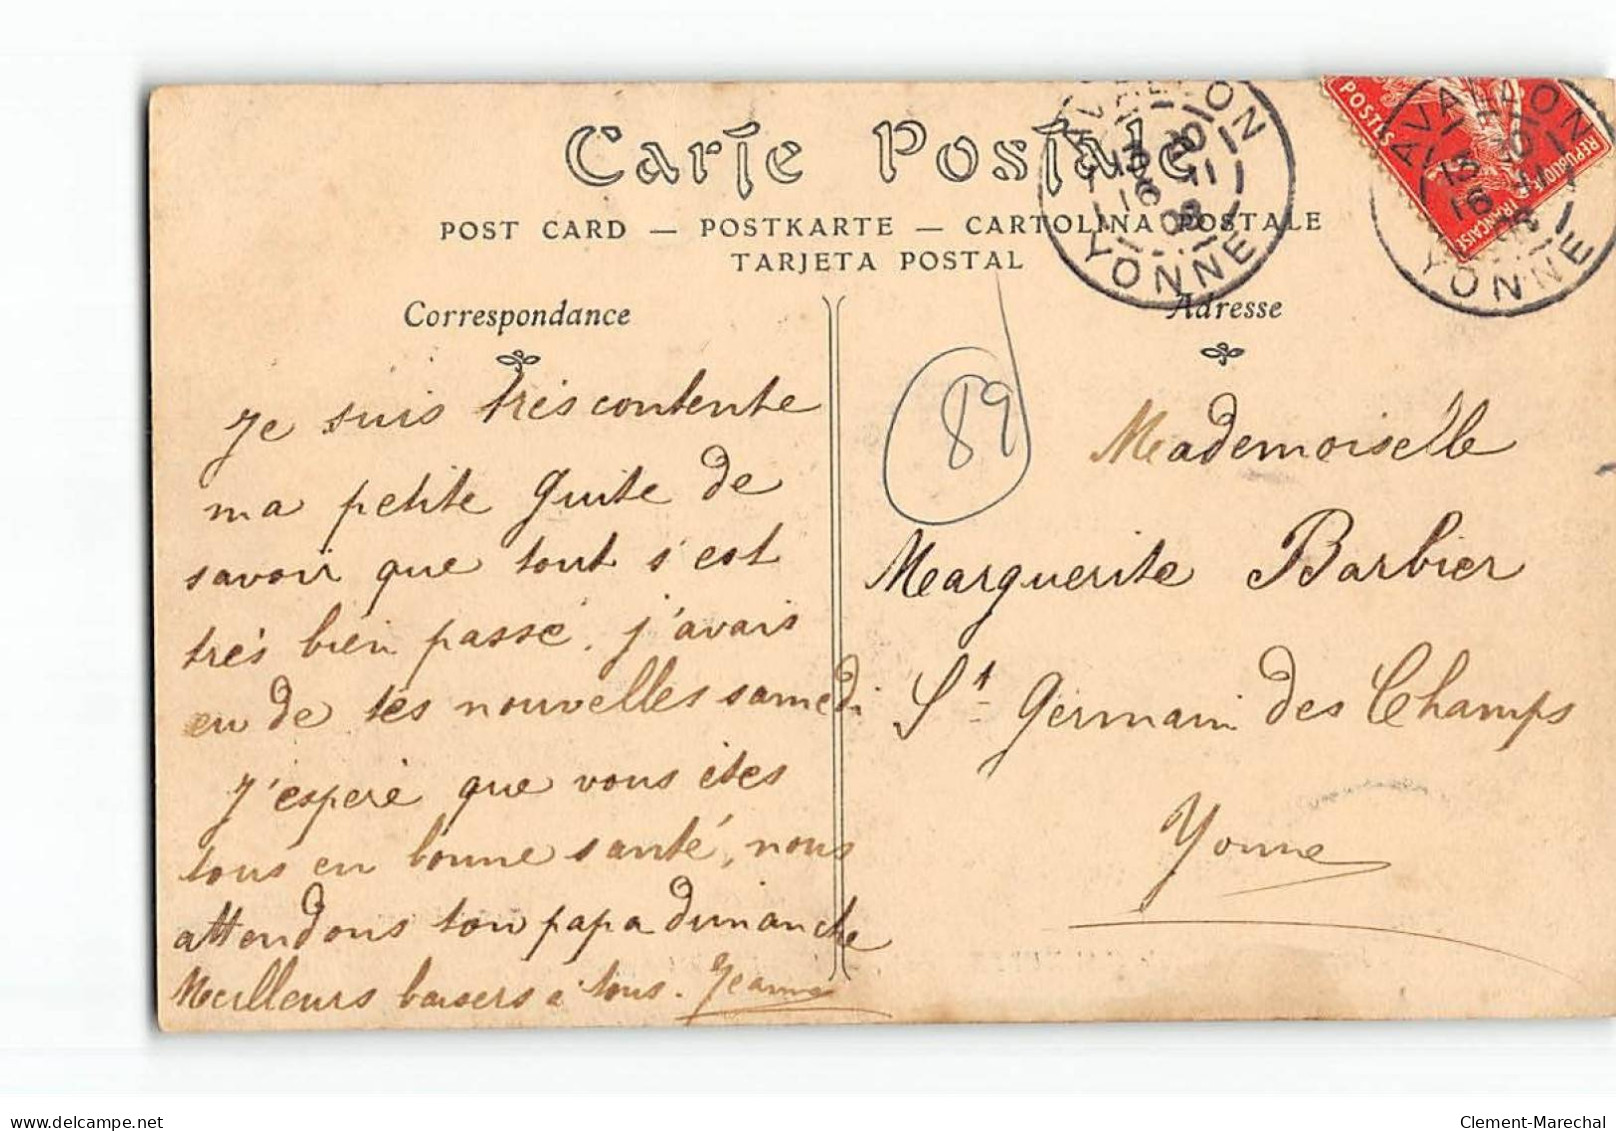 Carte Postale
POST CARD — POSTKARTE — CARTOLINA POSTALE
TARJETA POSTAL
Correspondance
Je suis très contente
ma petite Guite de
savoir que tout s'est
très bien passé, j'avais
eu de tes nouvelles samedi
J'espère que vous êtes
tous en bonne santé, nous
attendons ton papa dimanche
Meilleurs baisers à tous. Jeanne
Adresse
89
Mademoiselle
Marguerite Barbier
St Germain des Champs
Yonne
AVALLON
YONNE
POSTES
REPUBLIQUE FRANÇAISE
AVALLON
YONNE
Clement-Marechal